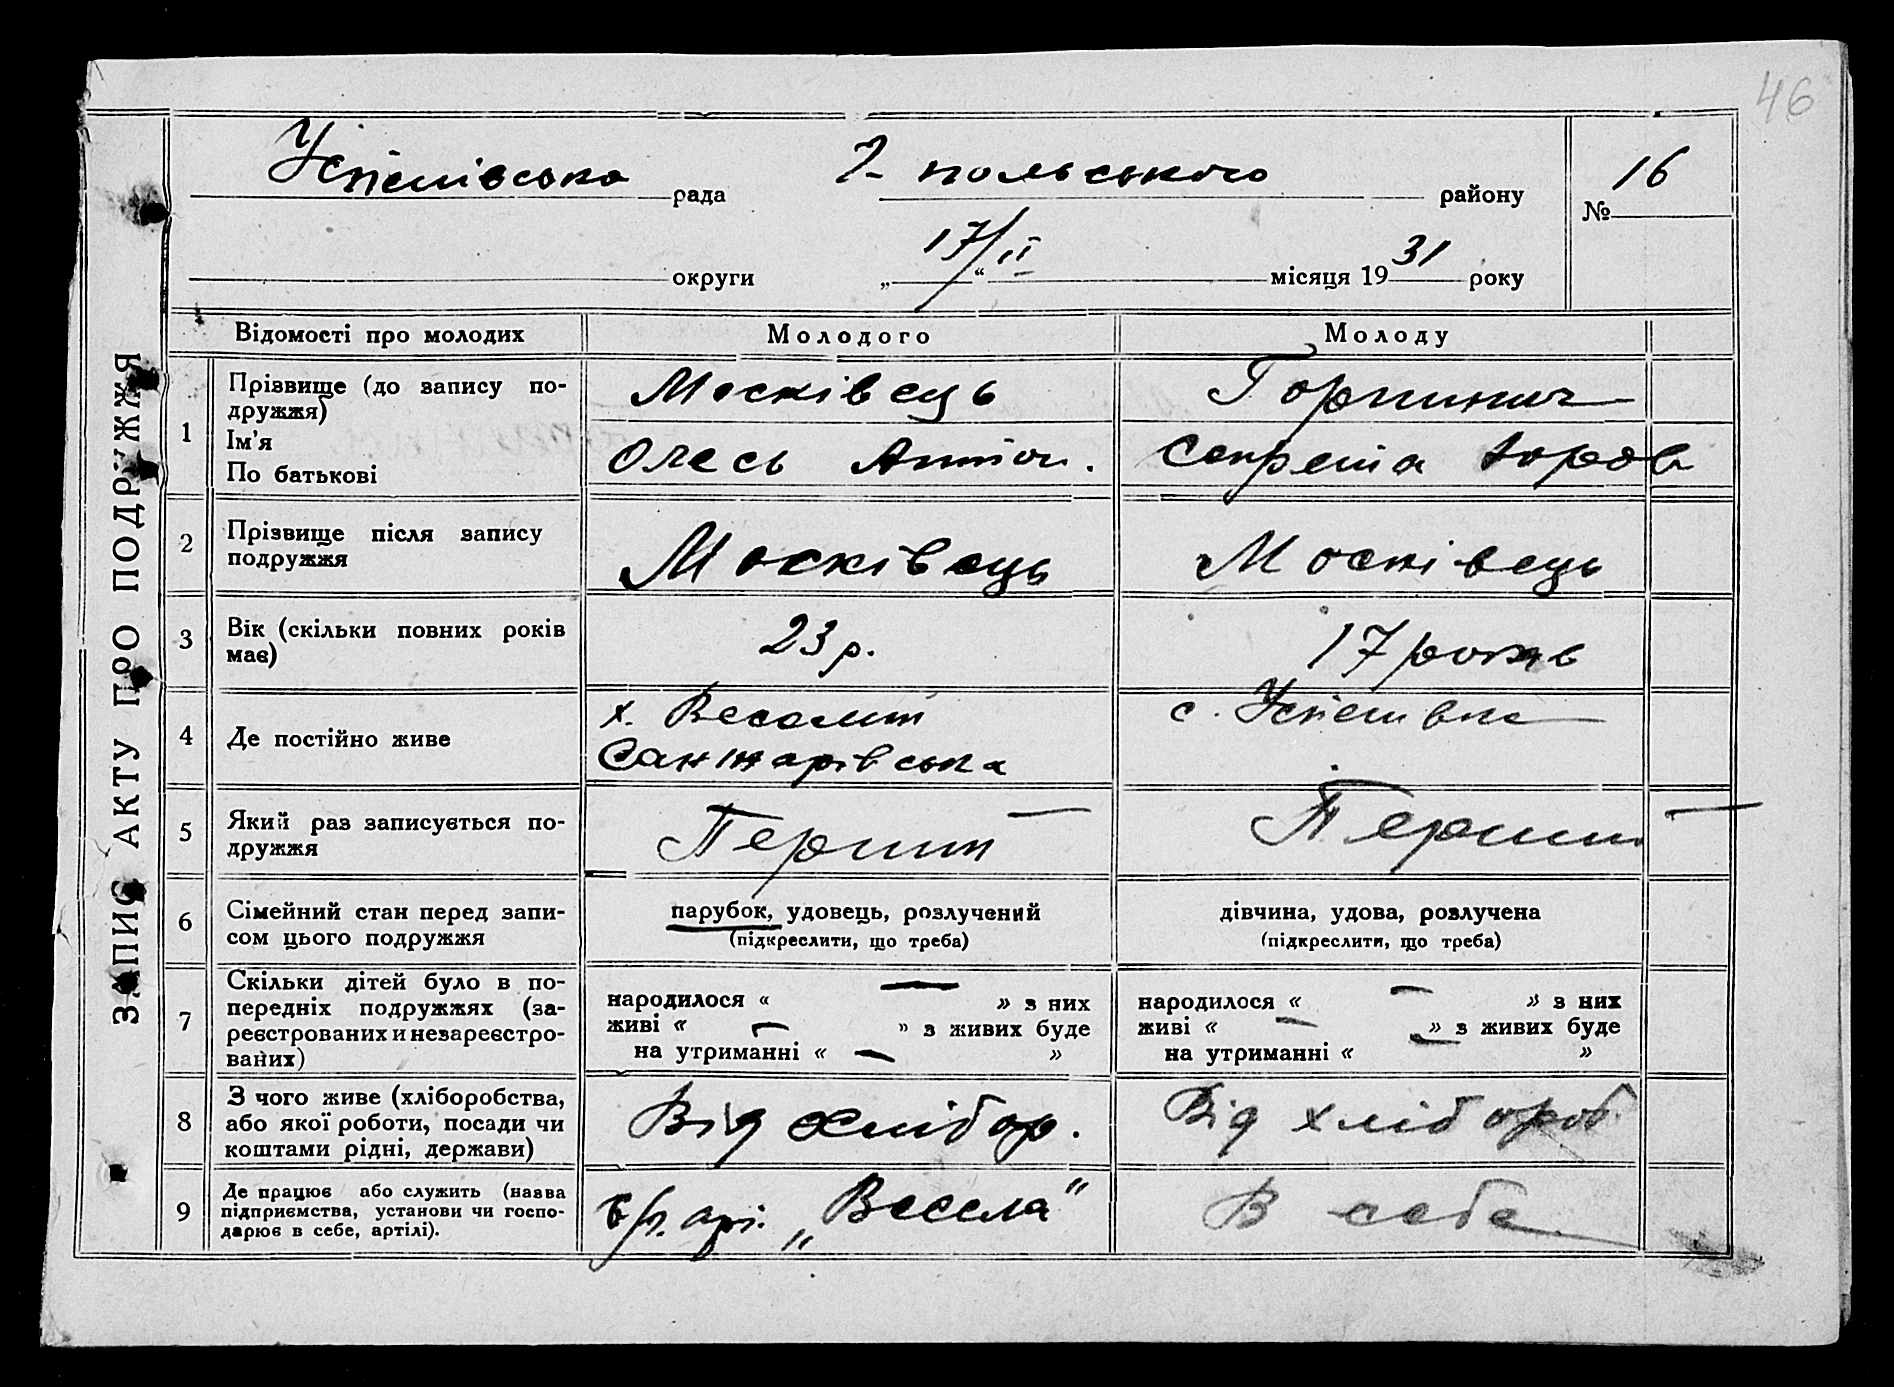 46
Успенівська рада
Г-польського району
№ 16
округи „17/ІІ“ місяця 1931 року
ЗАПИС АКТУ ПРО ПОДРУЖЖЯ
Відомості про молодих
Молодого
Молоду
1
Прізвище (до запису по-
дружжя)
Ім'я
По батькові
Москівець
Олесь Антон.
Горпинич
2
Прізвище після запису
подружжя
Москівець
Москівець
3
Вік (скільки повних років
має)
23 р.
17 років
4
Де постійно живе
х. Веселий
Санжарівська
с. Успенівка
5
Який раз записується по-
дружжя
Перший
Перший
6
Сімейний стан перед запи-
сом цього подружжя
парубок, удовець, розлучений
(підкреслити, що треба)
дівчина, удова, розлучена
(підкреслити, що треба)
7
Скільки дітей було в по-
передніх подружжях (за-
реєстрованих и незареєстро-
ваних)
народилося « — » з них
живі « — » з живих буде
на утриманні « — »
народилося « — » з них
живі « — » з живих буде
на утриманні « — »
8
З чого живе (хліборобства,
або якої роботи, посади чи
коштами рідні, держави)
Від хлібор.
Від хлібороб.
9
Де працює або служить (назва
підприємства, установи чи госпо-
дарює в себе, артілі).
„Весела“
В себе